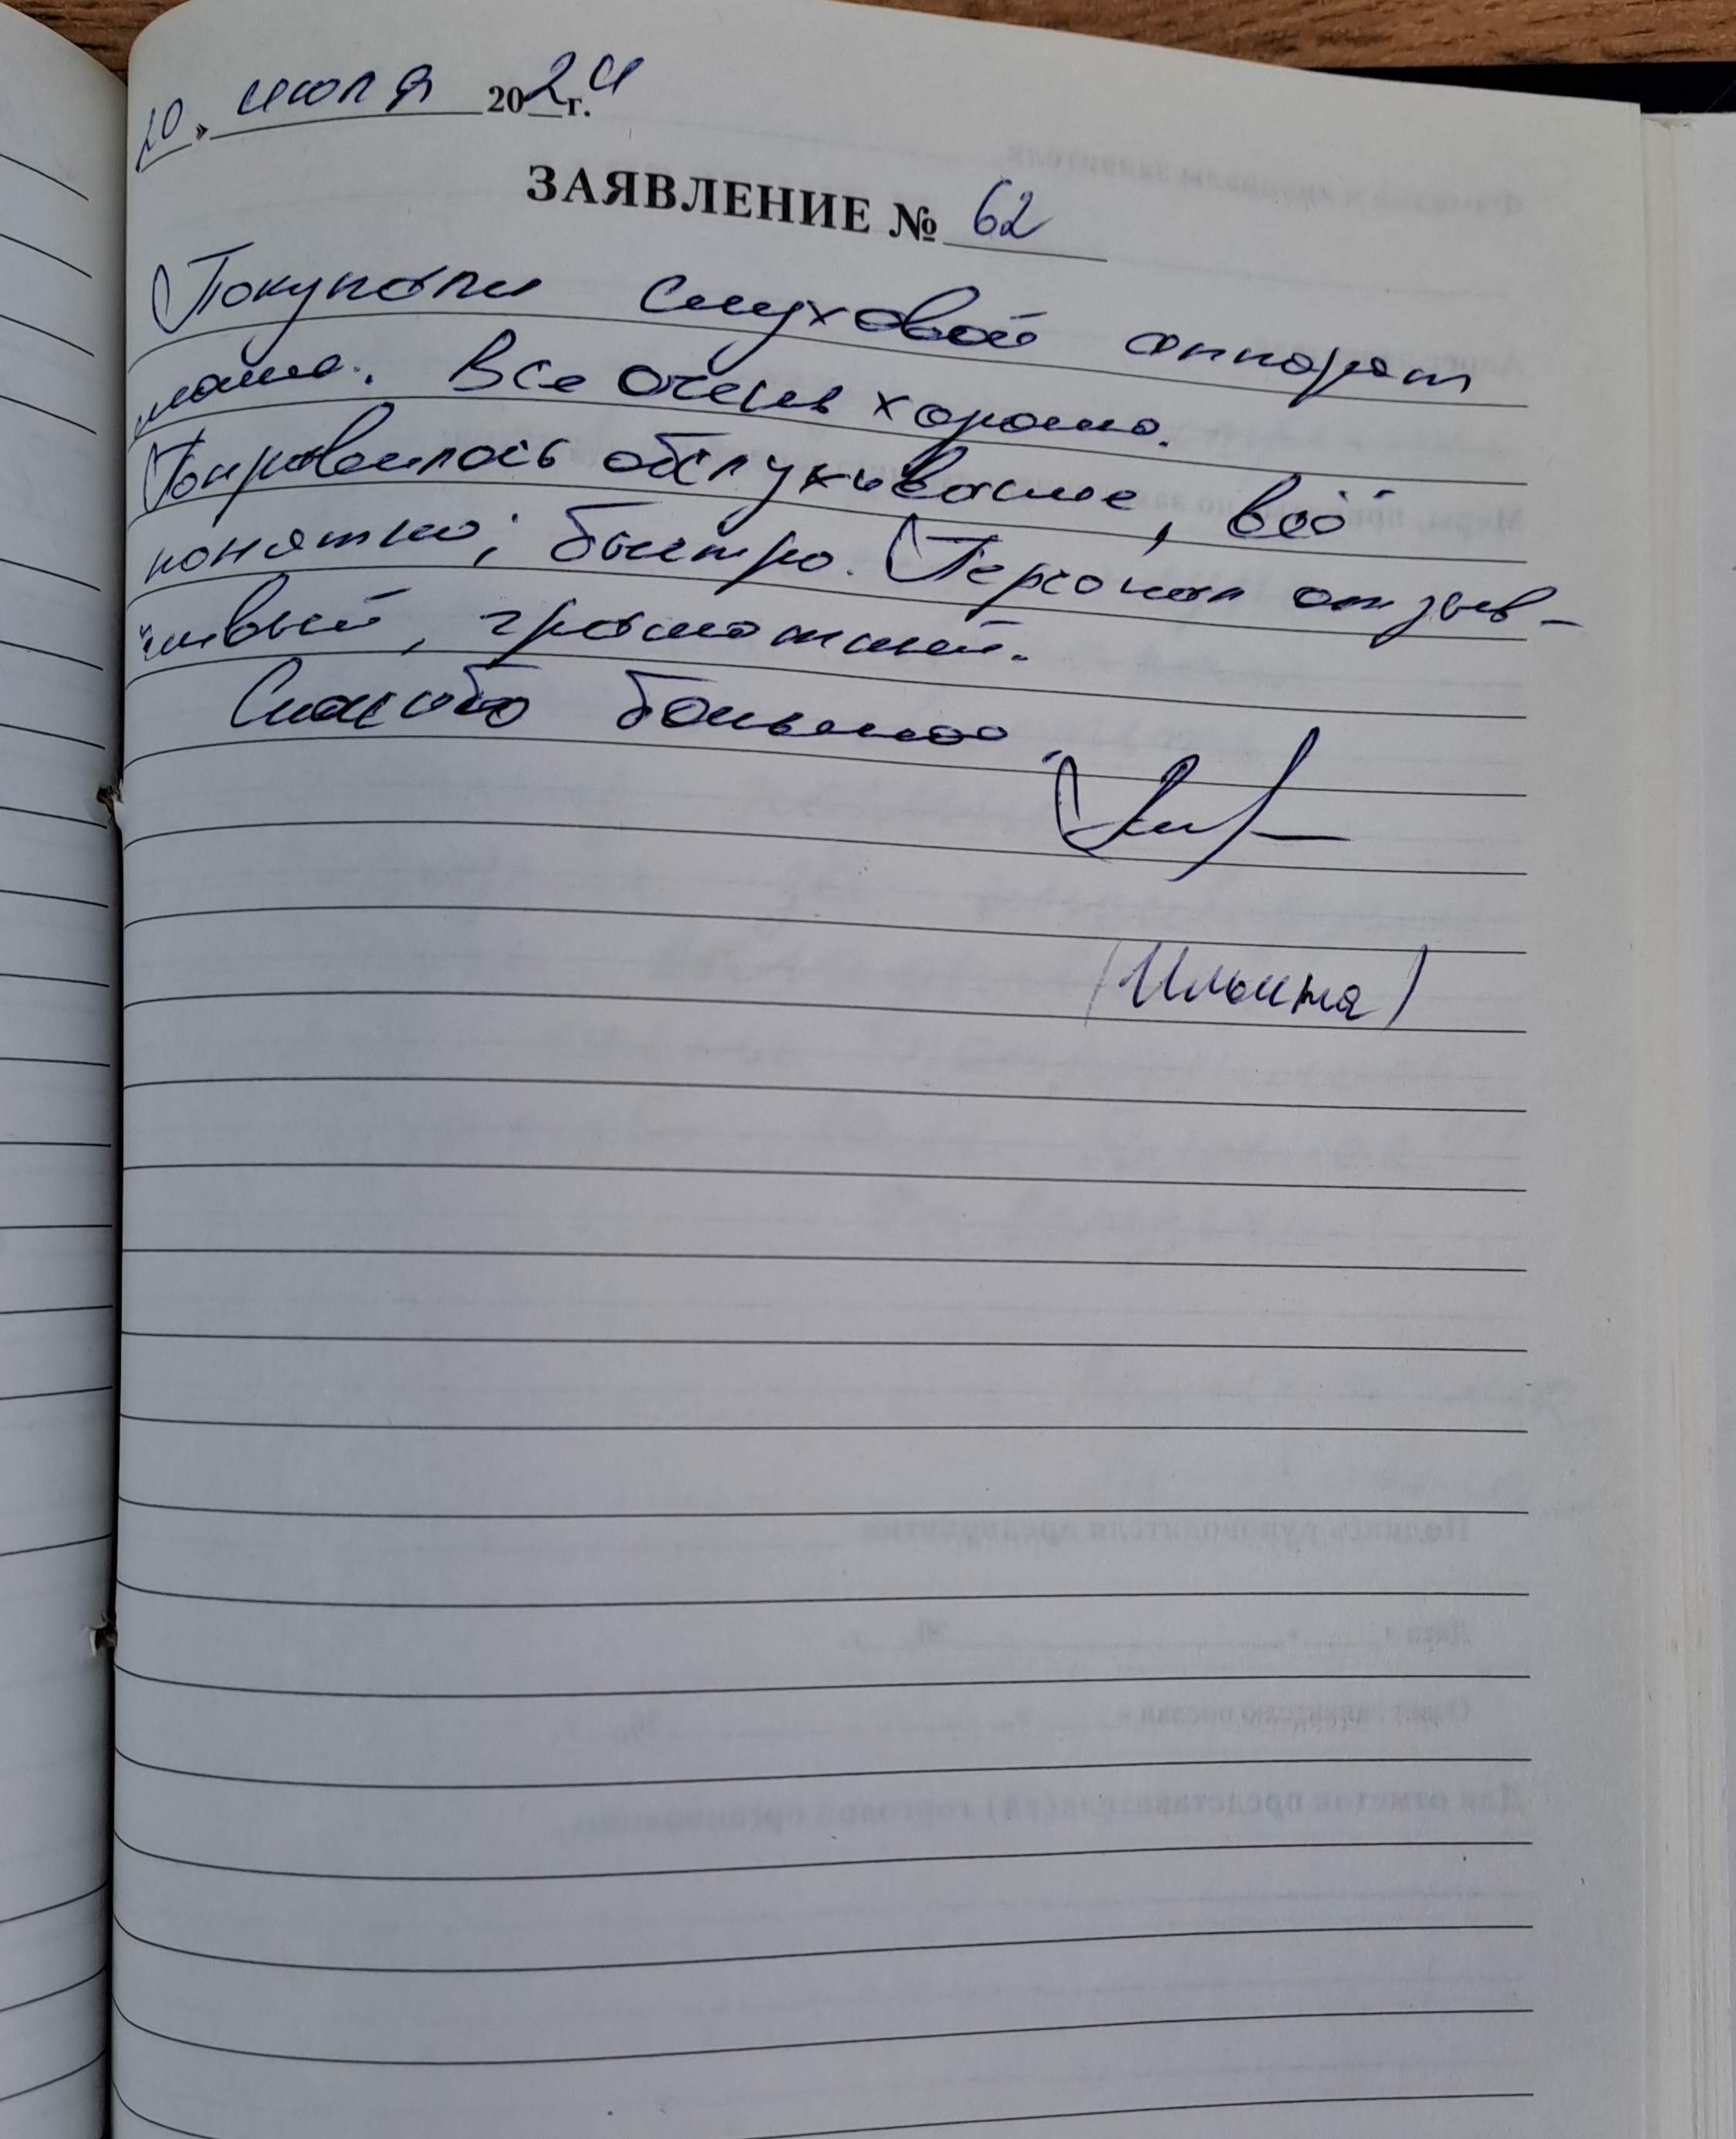 20 » июля 2024 г.
ЗАЯВЛЕНИЕ № 62
Покупали слуховой аппарат
маме. Все очень хорошо.
Понравилось обслуживание, всё
понятно, быстро. Персонал отзыв-
чивый, грамотный.
Спасибо большое.
(Ильина)